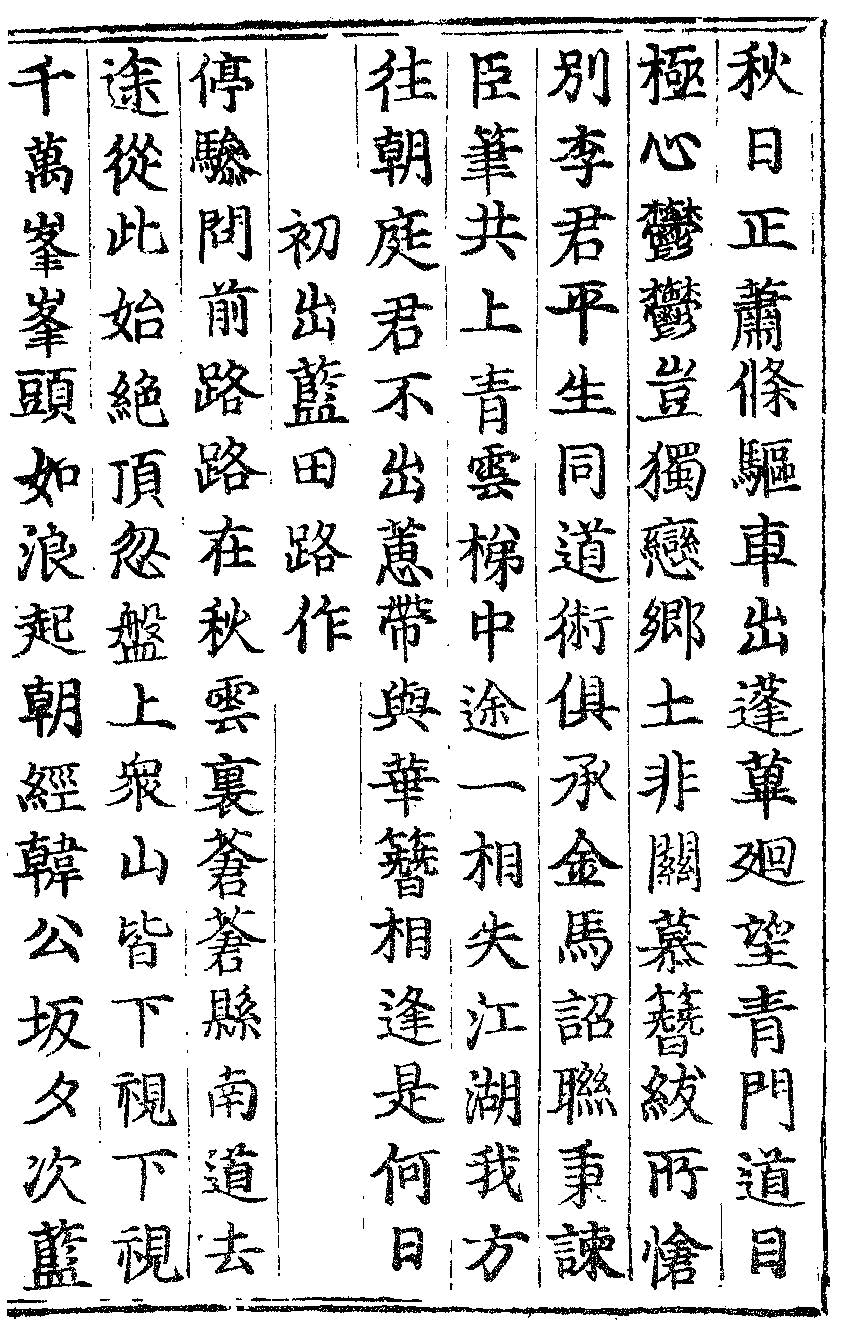 秋日正蕭條驅車出蓬蓽廻望青門道目
極心鬱鬱豈獨戀鄉土非關慕簪紱所愴
別李君平生同道術俱承金馬詔聯秉諫
臣筆共上青雲梯中途一相失江湖我方
往朝庭君不出蕙帶與華簪相逢是何日
初出藍田路作
停驂問前路路在秋雲裏蒼蒼縣南道去
途從此始絶頂忽盤上衆山皆下視下視
千萬峯峯頭如浪起朝經韓公坂夕次藍